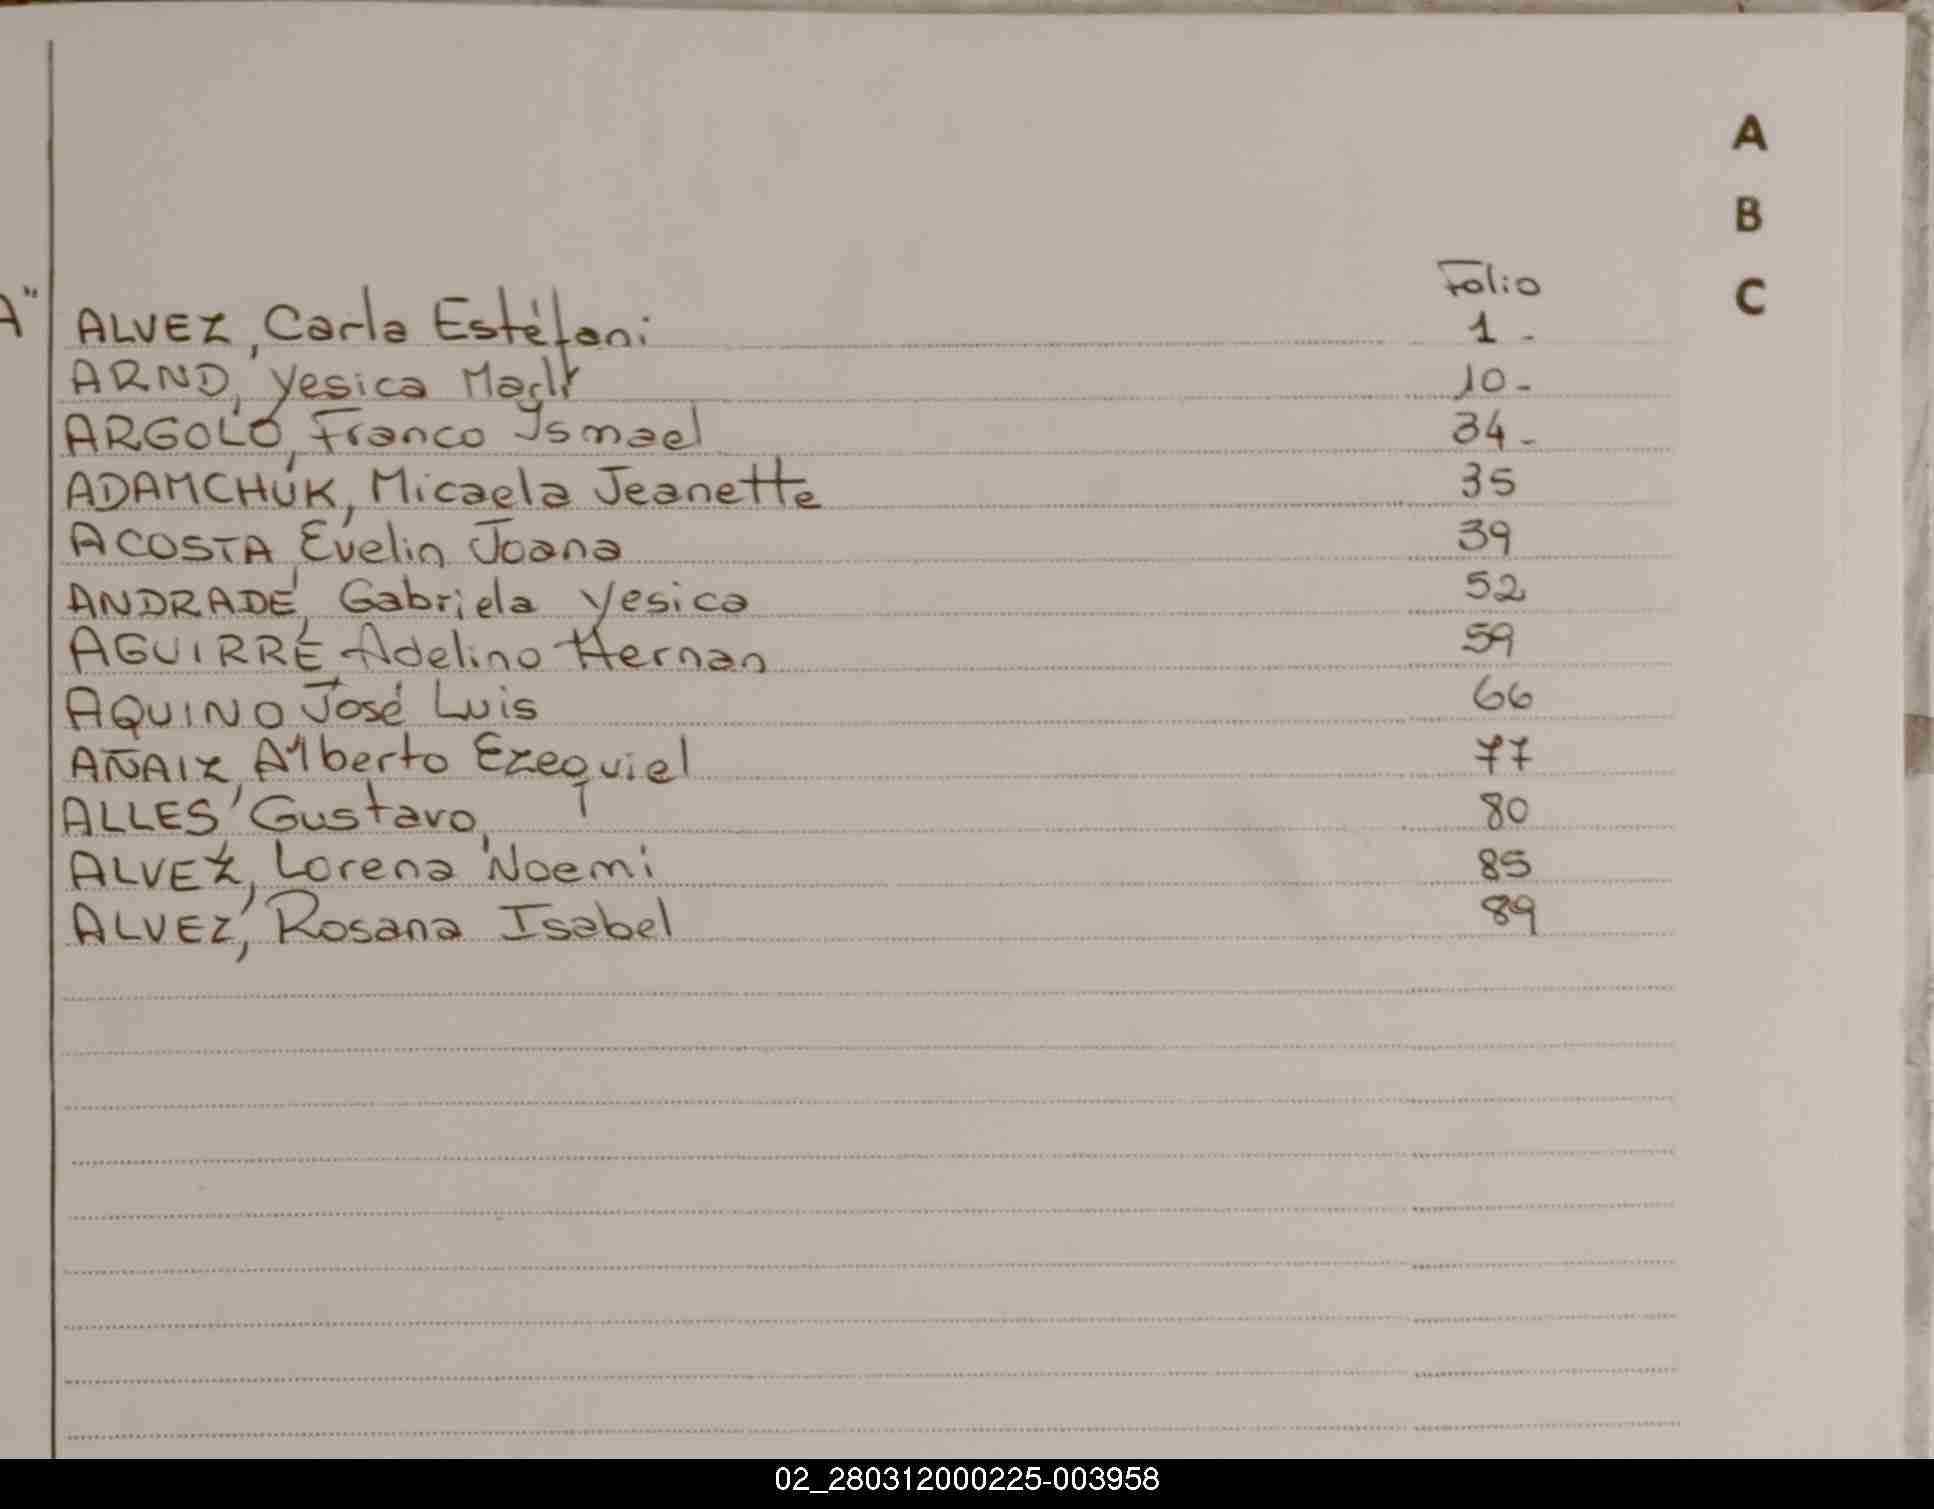 A
B
C
Folio
A" ALVEZ, Carla Estéfani 1 -
ARND, Yesica 10 -
ARGOLO, Franco Ismael 34 -
ADAMCHUK, Micaela Jeanette 35
ACOSTA Evelin Joana 39
ANDRADE, Gabriela Yesica 52
AGUIRRE Adelino Hernan 59
AQUINO José Luis 66
AÑAIZ, Alberto Ezequiel 77
ALLES, Gustavo, 80
ALVEZ, Lorena Noemi 85
ALVEZ, Rosana Isabel 89
02_280312000225-003958